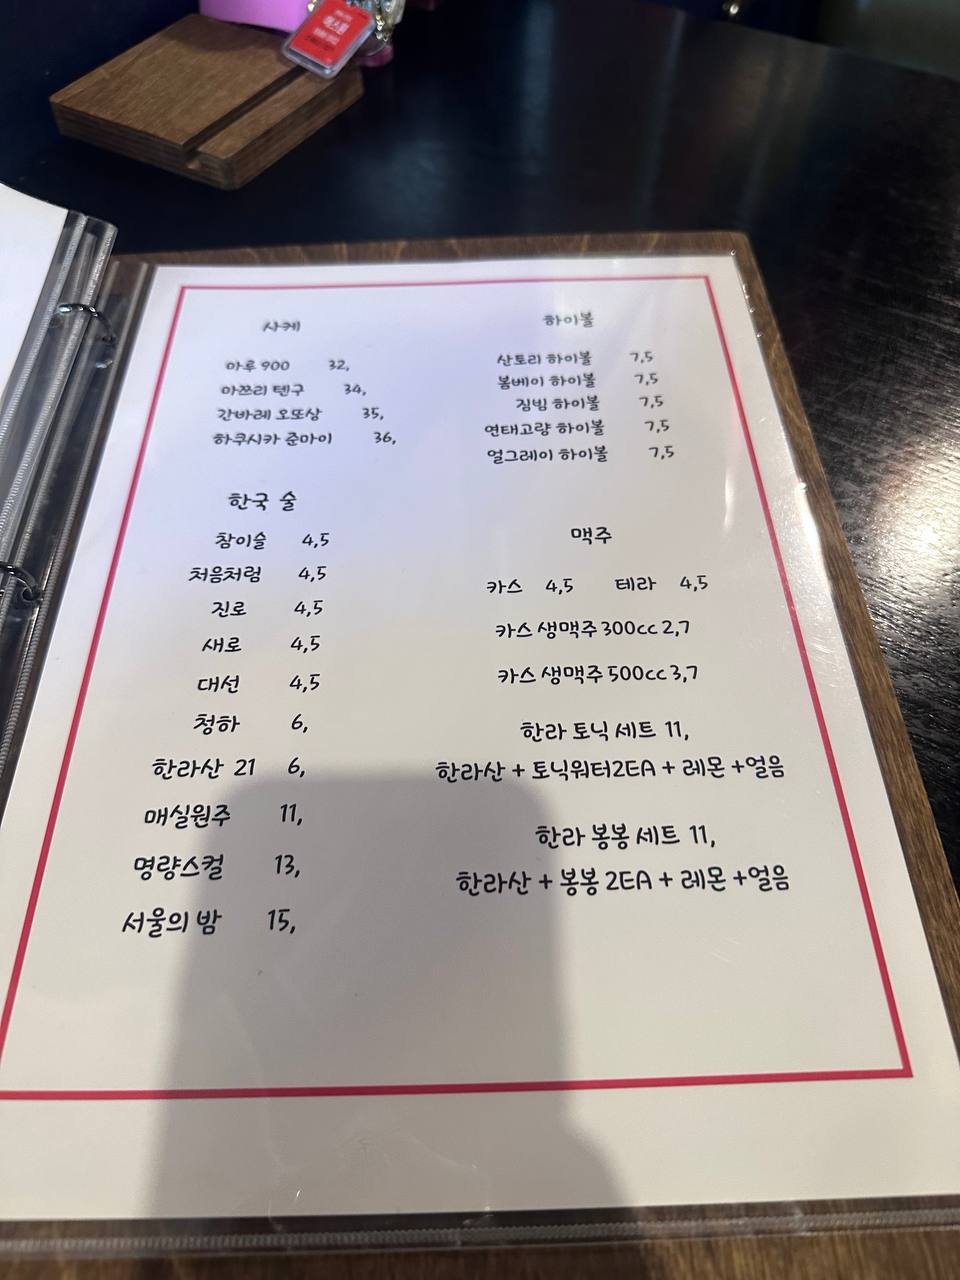 사케
마루 900 32,
아쯔리 텐구 34,
간바레 오또상 35,
하쿠시카 준마이 36,
한국 술
참이슬 4,5
처음처럼 4,5
진로 4,5
새로 4,5
대선 4,5
청하 6,
한라산 21 6,
매실원주 11,
명량스컬 13,
서울의 밤 15,
하이볼
산토리 하이볼 7,5
봄베이 하이볼 7,5
짐빔 하이볼 7,5
연태고량 하이볼 7,5
얼그레이 하이볼 7,5
맥주
카스 4,5 테라 4,5
카스 생맥주 300cc 2,7
카스 생맥주 500cc 3,7
한라 토닉 세트 11,
한라산 + 토닉워터2EA + 레몬 +얼음
한라 봉봉 세트 11,
한라산 + 봉봉 2EA + 레몬 +얼음